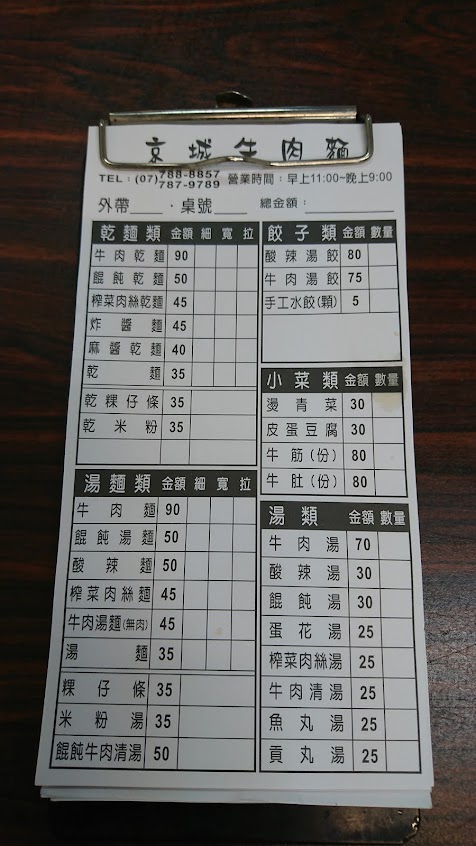 京城牛肉麵
TEL：(07)788-8857
787-9789
營業時間：早上11:00~晚上9:00
外帶____．桌號____ 總金額：
乾麵類 金額 細 寬 拉
牛肉乾麵 90
餛飩乾麵 50
榨菜肉絲乾麵 45
炸醬麵 45
麻醬乾麵 40
乾麵 35
乾粿仔條 35
乾米粉 35
湯麵類 金額 細 寬 拉
牛肉麵 90
餛飩湯麵 50
酸辣麵 50
榨菜肉絲麵 45
牛肉湯麵(無肉) 45
湯麵 35
粿仔條 35
米粉湯 35
餛飩牛肉清湯 50
餃子類 金額 數量
酸辣湯餃 80
牛肉湯餃 75
手工水餃(顆) 5
小菜類 金額 數量
燙青菜 30
皮蛋豆腐 30
牛筋(份) 80
牛肚(份) 80
湯類 金額 數量
牛肉湯 70
酸辣湯 30
餛飩湯 30
蛋花湯 25
榨菜肉絲湯 25
牛肉清湯 25
魚丸湯 25
貢丸湯 25